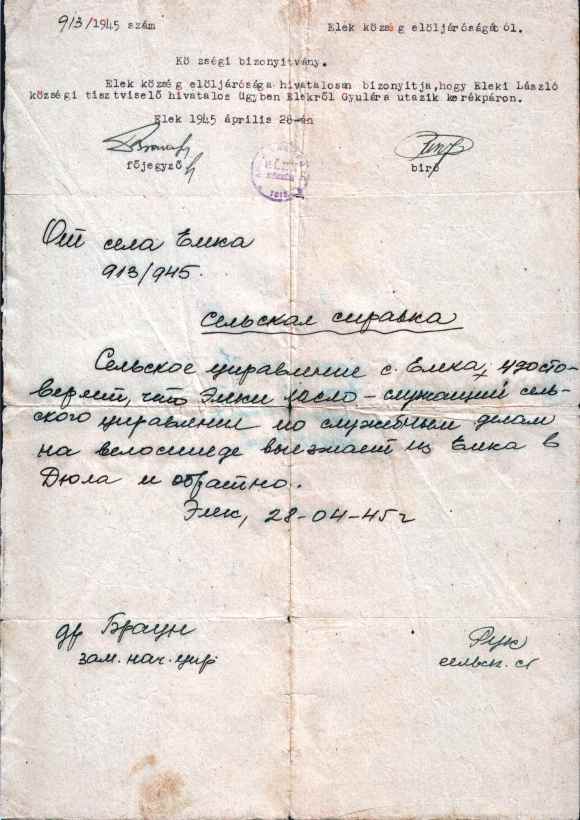 913/1945 szám Elek község elöljáróságától.
Községi bizonyitvány.
Elek község elöljárósága hivatalosan bizonyitja, hogy Eleki László
községi tisztviselő hivatalos ügyben Elekről Gyulára utazik kerékpáron.
Elek 1945 április 28-án
főjegyző
biró
От села Елка
913/945.
Сельская справка
Сельское управление с. Елка, удосто-
верят, что Элеки Ласло - служащий сель-
ского управлени по служебным делам
на велосипеде выезжает из Елка в
Дюла и обратно.
Элек, 28-04-45 г
др Браун
зам. нач. упр
Рук
сельск. ст